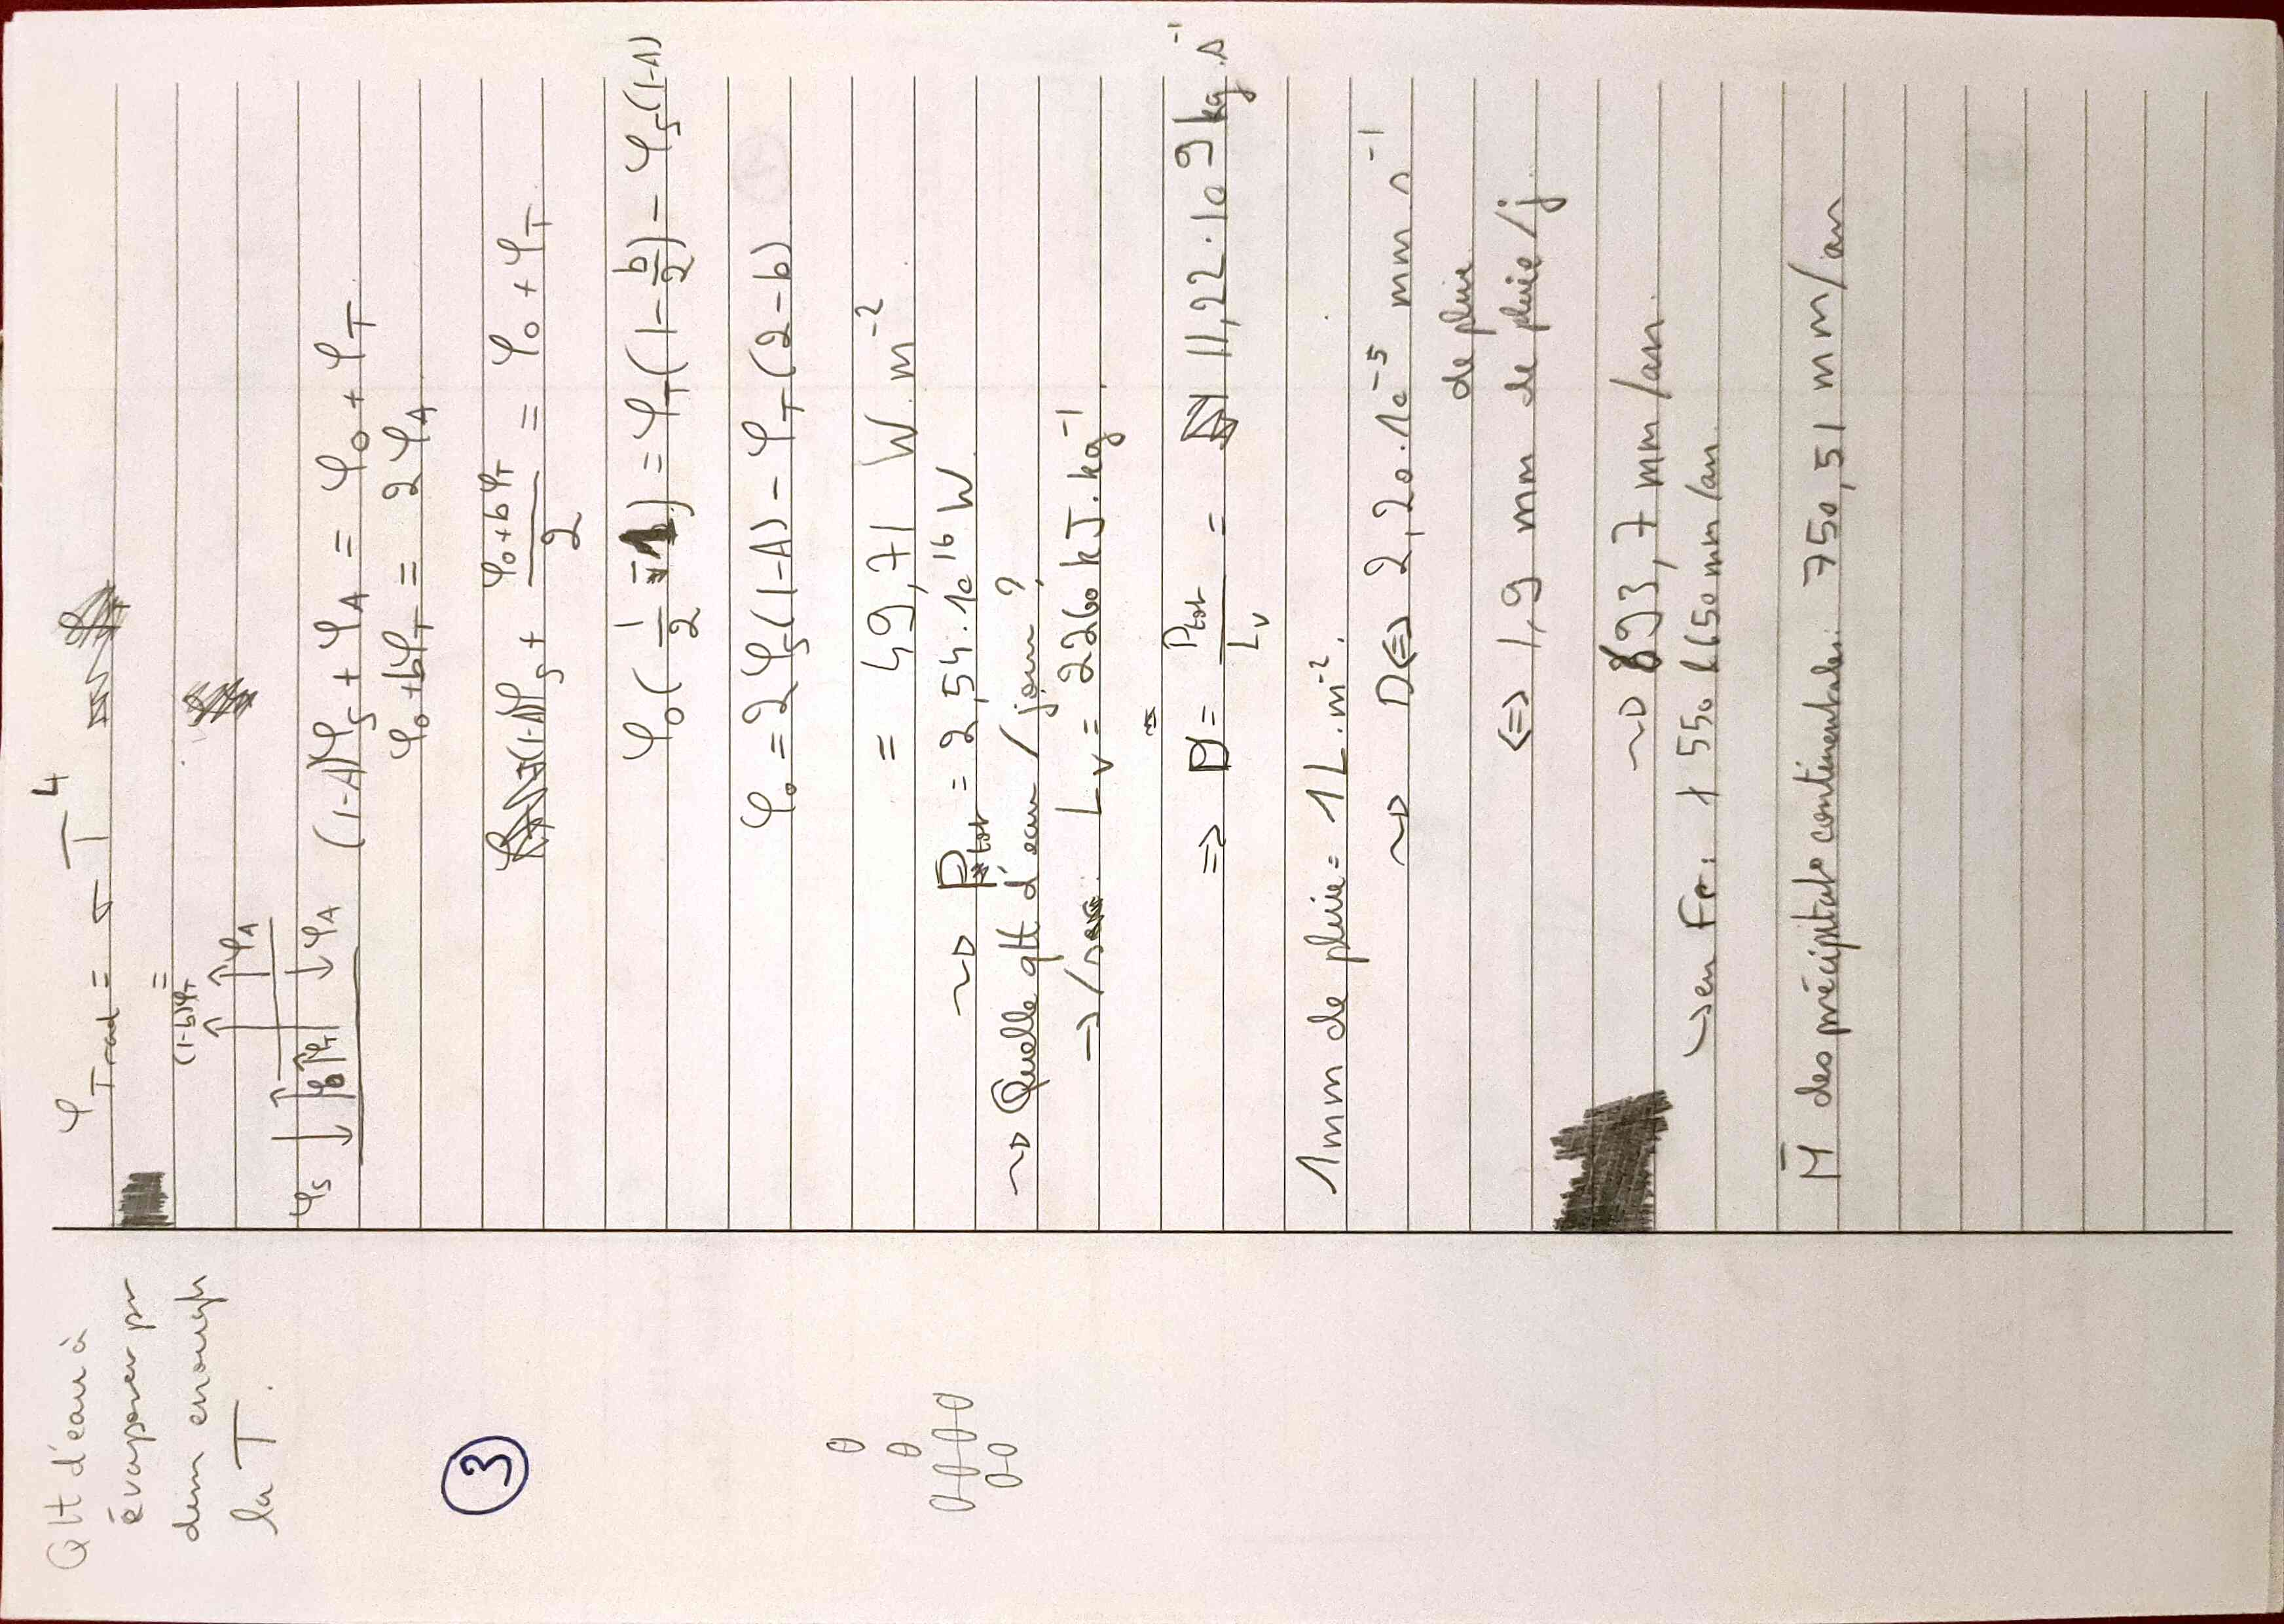 Qtt d'eau à
évaporer pr
dim enough
la T.
3
φ_Trad = σ T^4
=
(1-b)φ_T
φ_A
φ_S φ_0 φ_T φ_A
(1-A)φ_S + φ_A = φ_0 + φ_T
φ_0 + bφ_T = 2φ_A
(1-A)φ_S + (φ_0 + bφ_T)/2 = φ_0 + φ_T
φ_0 (1/2 - 1) = φ_T (1 - b/2) - φ_S (1-A)
φ_0 = 2φ_S (1-A) - φ_T (2-b)
= 49,71 W.m^-2
~> P_tot = 2,54.10^16 W
~> Quelle qtt d'eau / jour ?
-> / L_v = 2260 kJ.kg^-1.
=> D = P_tot/L_v = 11,22.10^9 kg.s^-1
1mm de pluie = 1L.m^-2.
~> D <=> 2,20.10^-5 mm s^-1
de pluie
<=> 1,9 mm de pluie / j.
~> 693,7 mm/an.
↪ en Fr : 550 à 650 mm/an
M̄ des précipitat° continentales : 750,51 mm/an